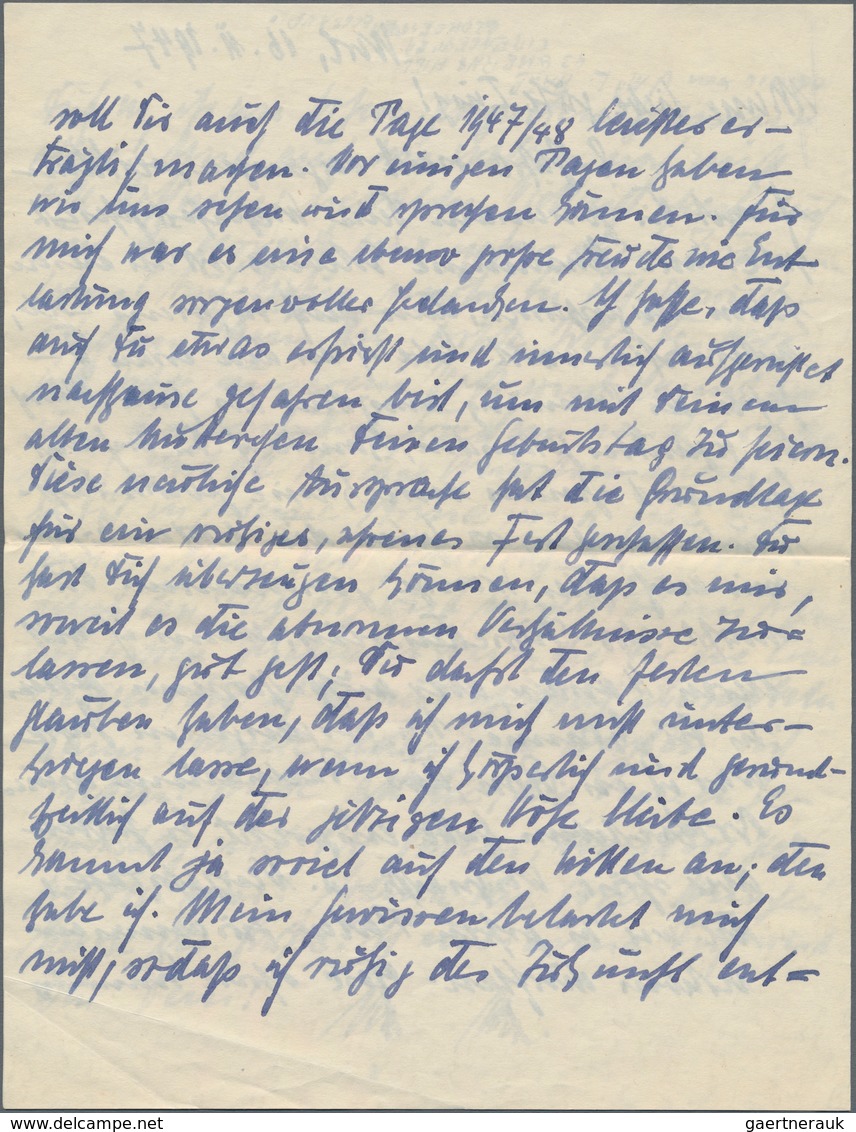 soll Dir auch die Tage 1947/48 leichter er-
träglich machen. Vor einigen Tagen haben
wir uns sehen und sprechen können. Für
mich war es eine ebenso große Freude wie Ent-
lastung sorgenvoller Gedanken. Ich hoffe, daß
auch Du etwas erfrischt und innerlich aufgerichtet
nachhause gefahren bist, um mit Deinem
alten Mutterchen Deinen Geburtstag zu feiern.
Diese neuliche Aussprache hat die Grundlage
für ein ruhiges, Fest geschaffen. Du
hast Dich überzeugen können, daß es mir,
soweit es die abnormen Verhältnisse zu-
lassen, gut geht; Du darfst den festen
Glauben haben, daß ich mich nicht unter-
kriegen lasse, wenn ich körperlich und gesund-
heitlich auf der jetzigen Höhe bleibe. Es
kommt ja soviel auf den Willen an; den
habe ich. Mein Gewissen belastet mich
nicht, sodaß ich ruhig der Zukunft ent-
16. II. 1947
gaertnerauk
OldThing.com